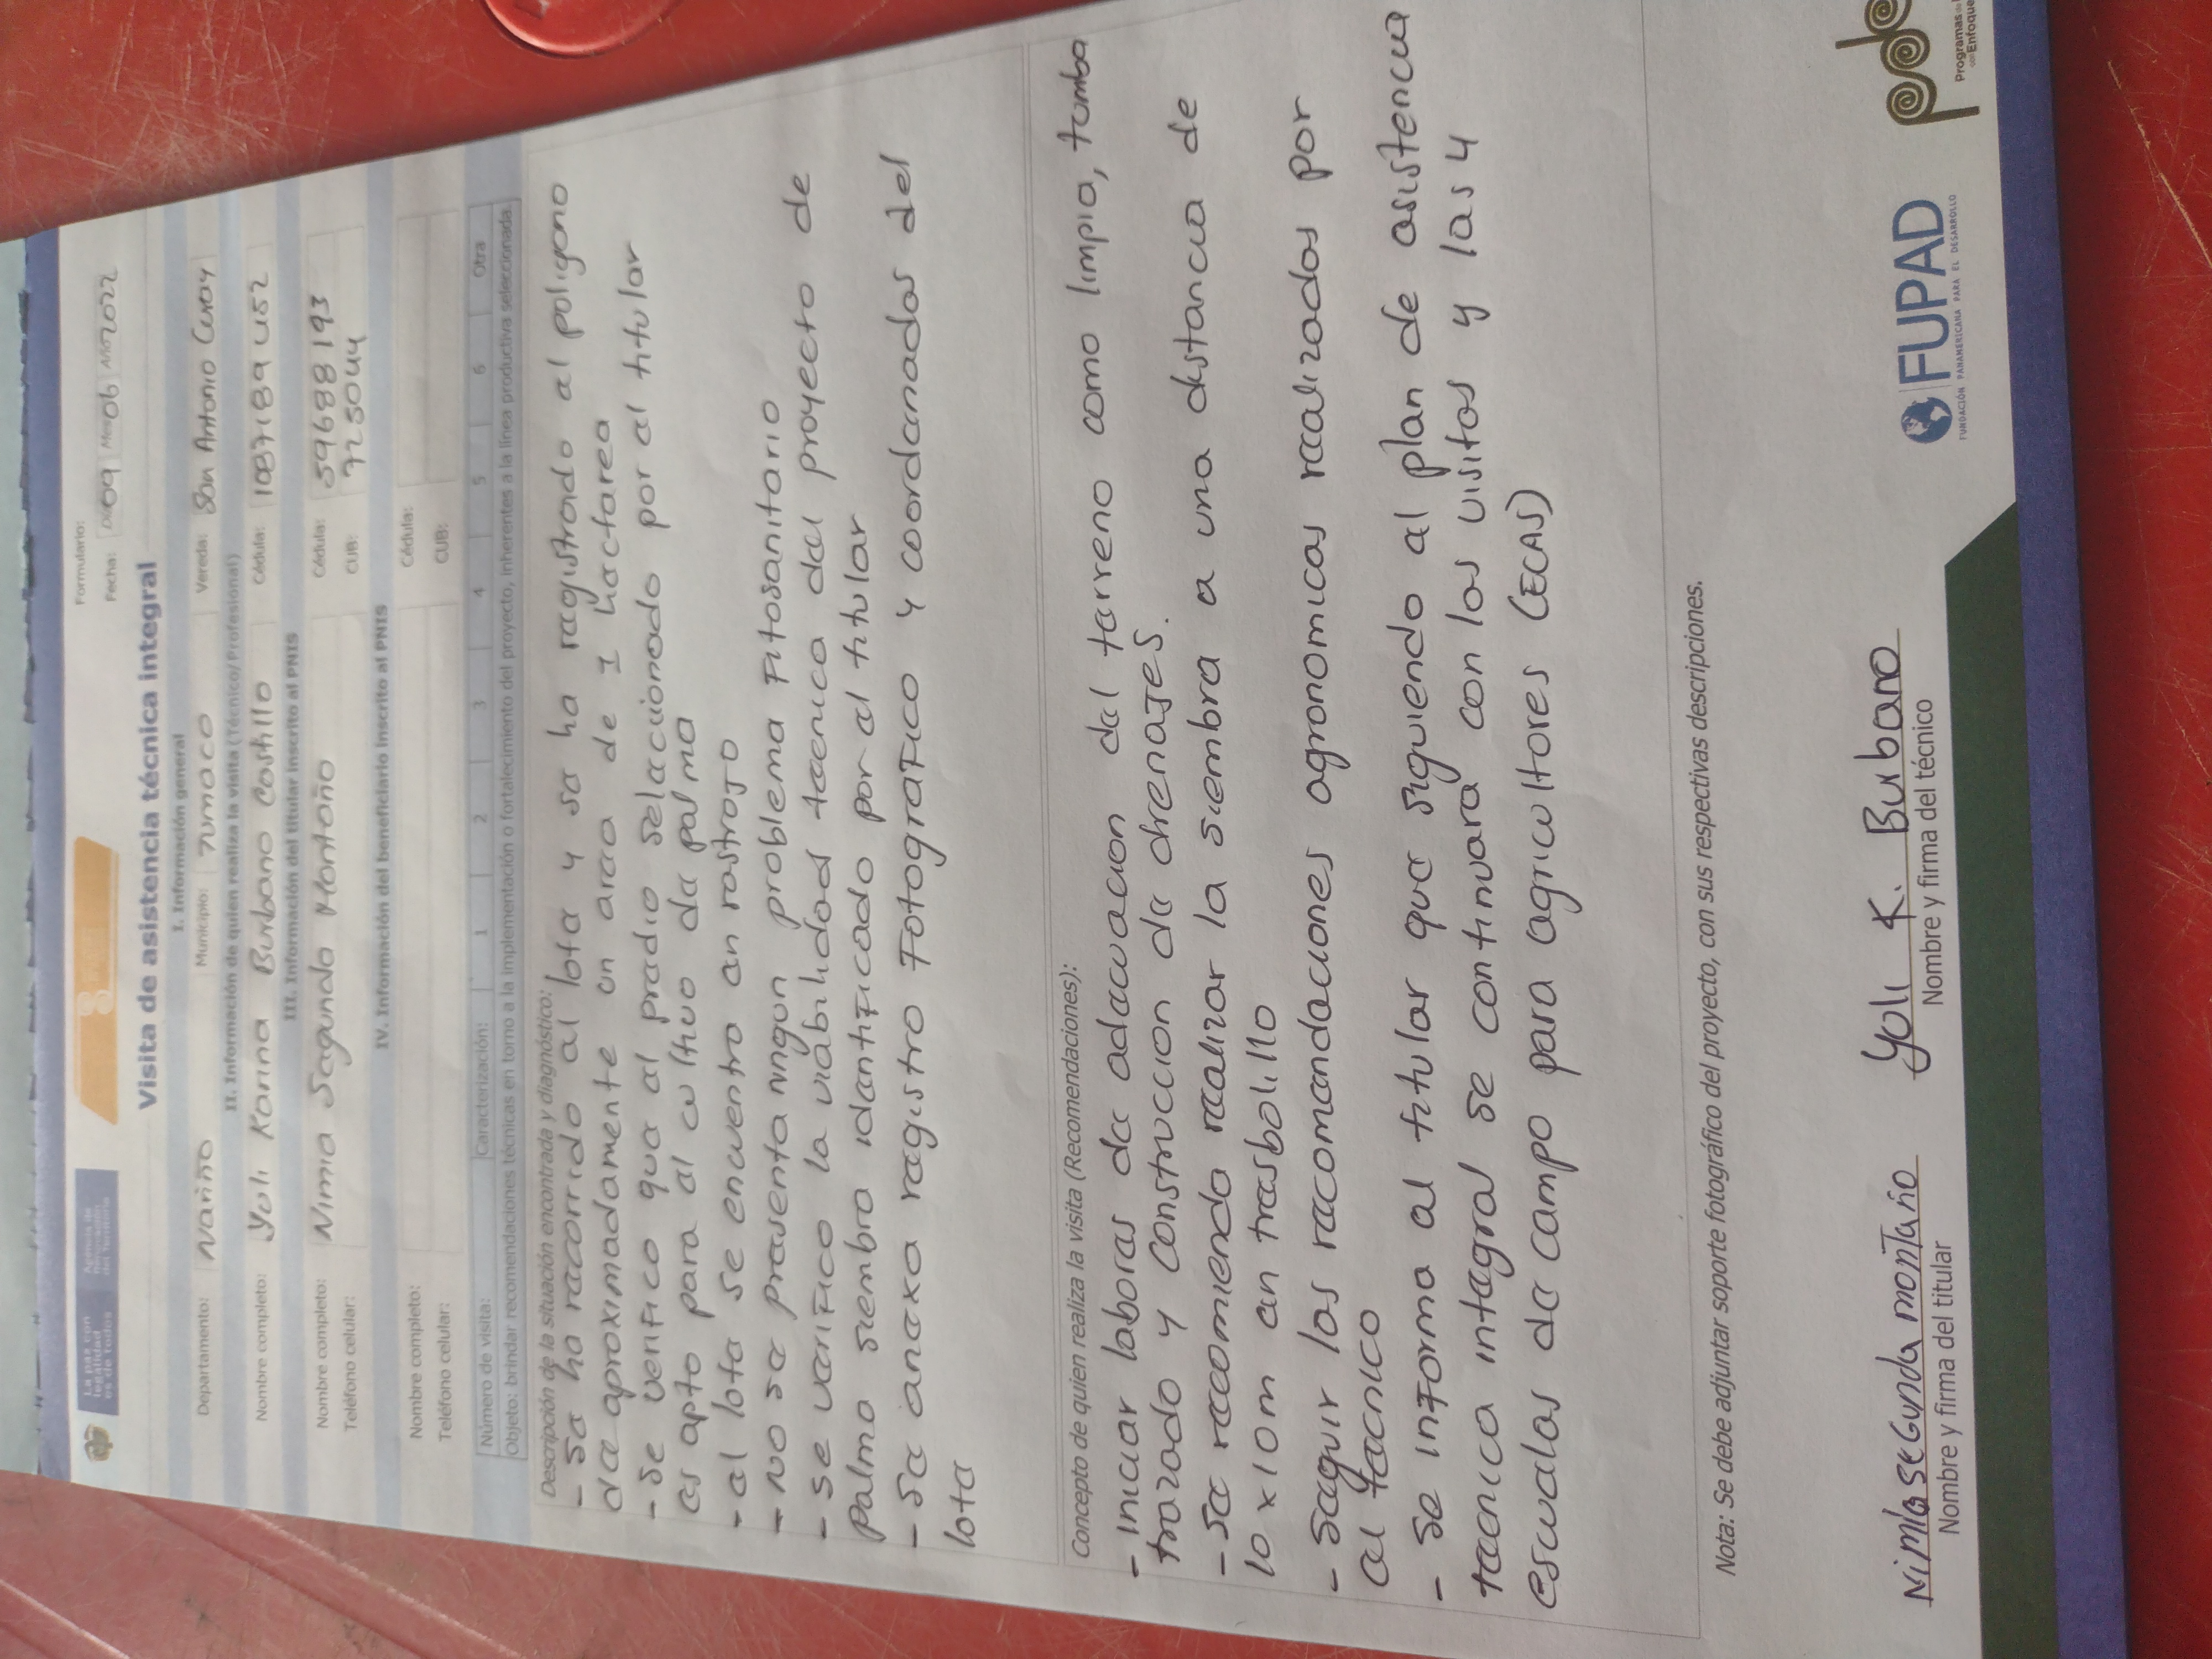 La paz con
legalidad
es de todos
Agencia de
Renovación
del Territorio
Formulario:
Fecha: Día 09 Mes 06 Año 2022
Visita de asistencia técnica integral
I. Información general
Departamento: Nariño Municipio: Tumaco Vereda: San Antonio Curay
II. Información de quien realiza la visita (Técnico/Profesional)
Nombre completo: Yuli Karina Burbano Castillo Cédula: 1087189452
III. Información del titular inscrito al PNIS
Nombre completo: Nimia Segunda Montaño Cédula: 59688193
Teléfono celular: CUB: 725044
IV. Información del beneficiario inscrito al PNIS
Nombre completo: Cédula:
Teléfono celular: CUB:
Número de visita: Caracterización: 1 2 3 4 5 6 Otra
Objeto: brindar recomendaciones técnicas en torno a la implementación o fortalecimiento del proyecto, inherentes a la línea productiva seleccionada.
Descripción de la situación encontrada y diagnóstico:
- se ha recorrido el lote y se ha registrado el poligono
de aproximadamente un area de 1 hectarea
- se verifico que el predio seleccionado por el titular
es apto para el cultivo de palma
- el lote se encuentra en rastrojo
- no se presenta ningun problema fitosanitario
- se verifico la viabilidad tecnica del proyecto de
palma siembra identificado por el titular
- se anexa registro fotografico y coordenadas del
lote
Concepto de quien realiza la visita (Recomendaciones):
- iniciar labores de adecuacion del terreno como limpia, tumba
trazado y construccion de drenajes.
- se recomienda realizar la siembra a una distancia de
10 x 10m en tresbolillo
- seguir las recomendaciones agronomicas realizadas por
el tecnico
- se informa al titular que siguiendo el plan de asistencia
tecnica integral se continuara con las visitas y las 4
escuelas de campo para agricultores (ECAS)
Nota: Se debe adjuntar soporte fotográfico del proyecto, con sus respectivas descripciones.
Nimia segunda montaño Yuli K. Burbano
Nombre y firma del titular Nombre y firma del técnico
FUPAD
FUNDACIÓN PANAMERICANA PARA EL DESARROLLO
Programas de
con Enfoque